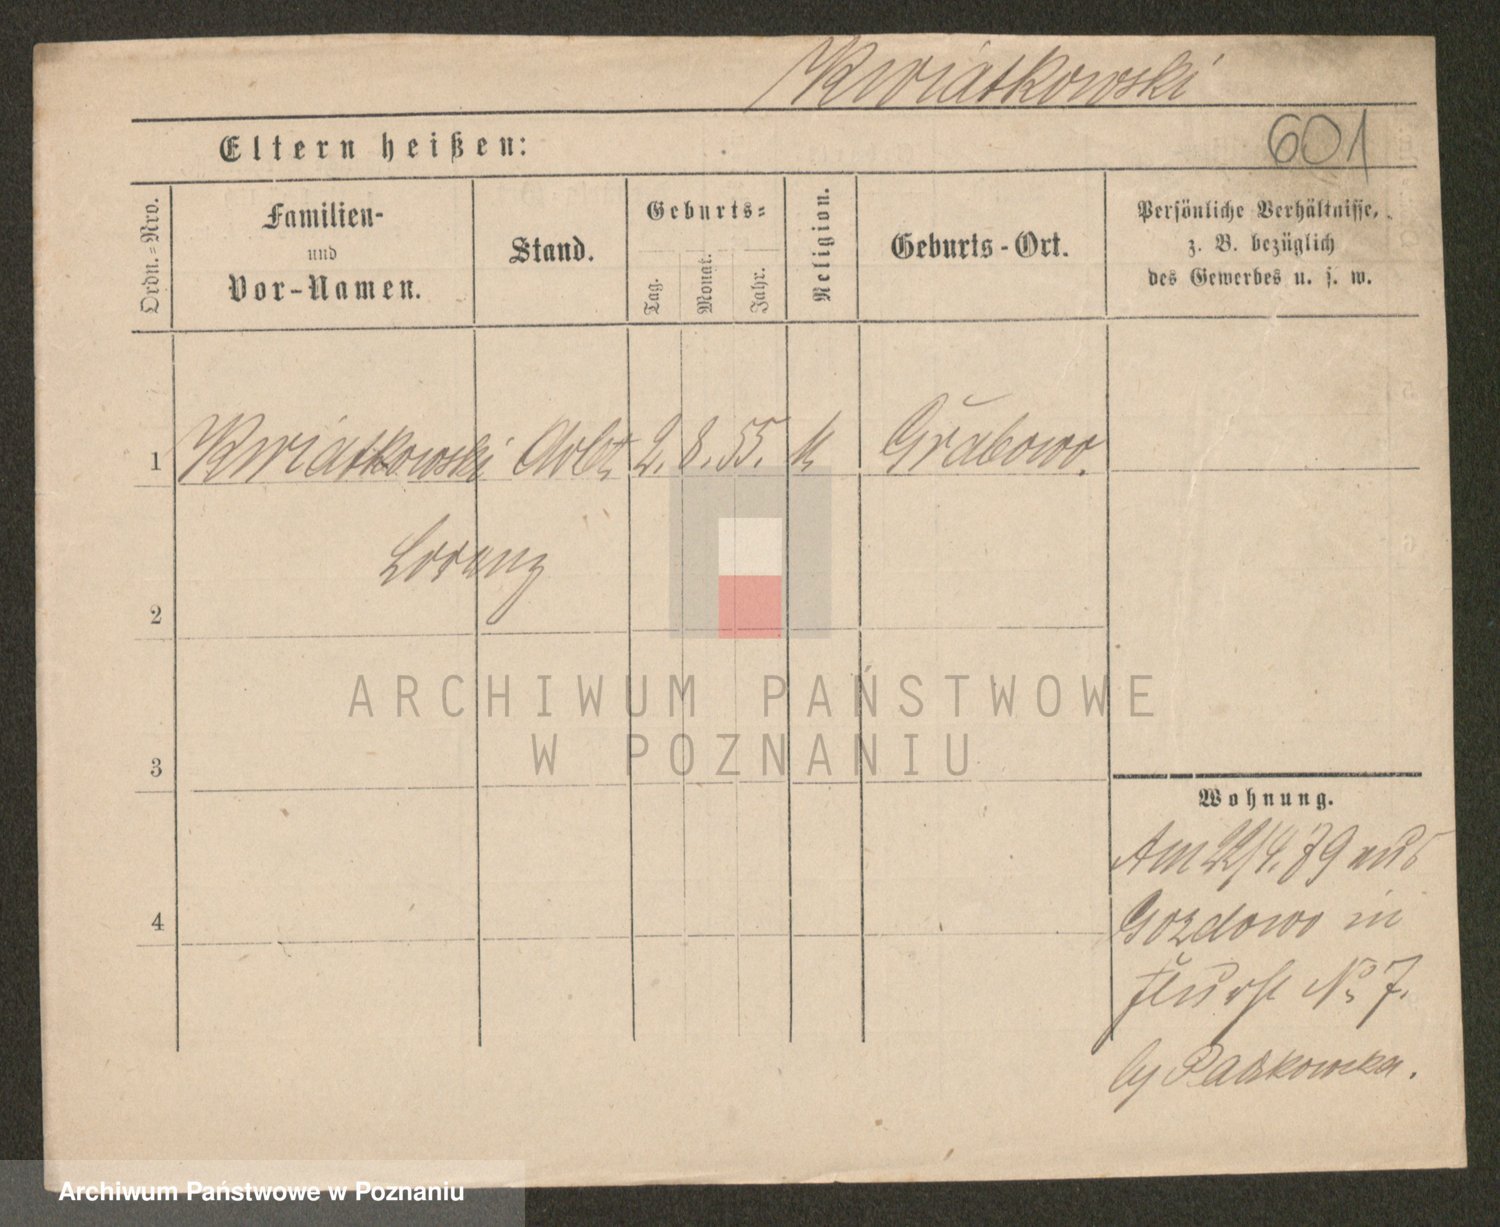 Kwiatkowski
601
Eltern heißen:
Ordn.=Nro.
Familien-
und
Vor-Namen.
Stand.
Geburts=
Tag.
Monat.
Jahr.
Religion.
Geburts-Ort.
Persönliche Verhältnisse,
z. B. bezüglich
des Gewerbes u. s. w.
1 Kwiatkowski Arbt. 2. 8. 55. k. Grabowo.
Lorenz
2
3
4
Wohnung.
Am 22/4. 79 aus
Gozdowo in
No 7.
by Radzkowska.
ARCHIWUM PAŃSTWOWE
W POZNANIU
Archiwum Państwowe w Poznaniu